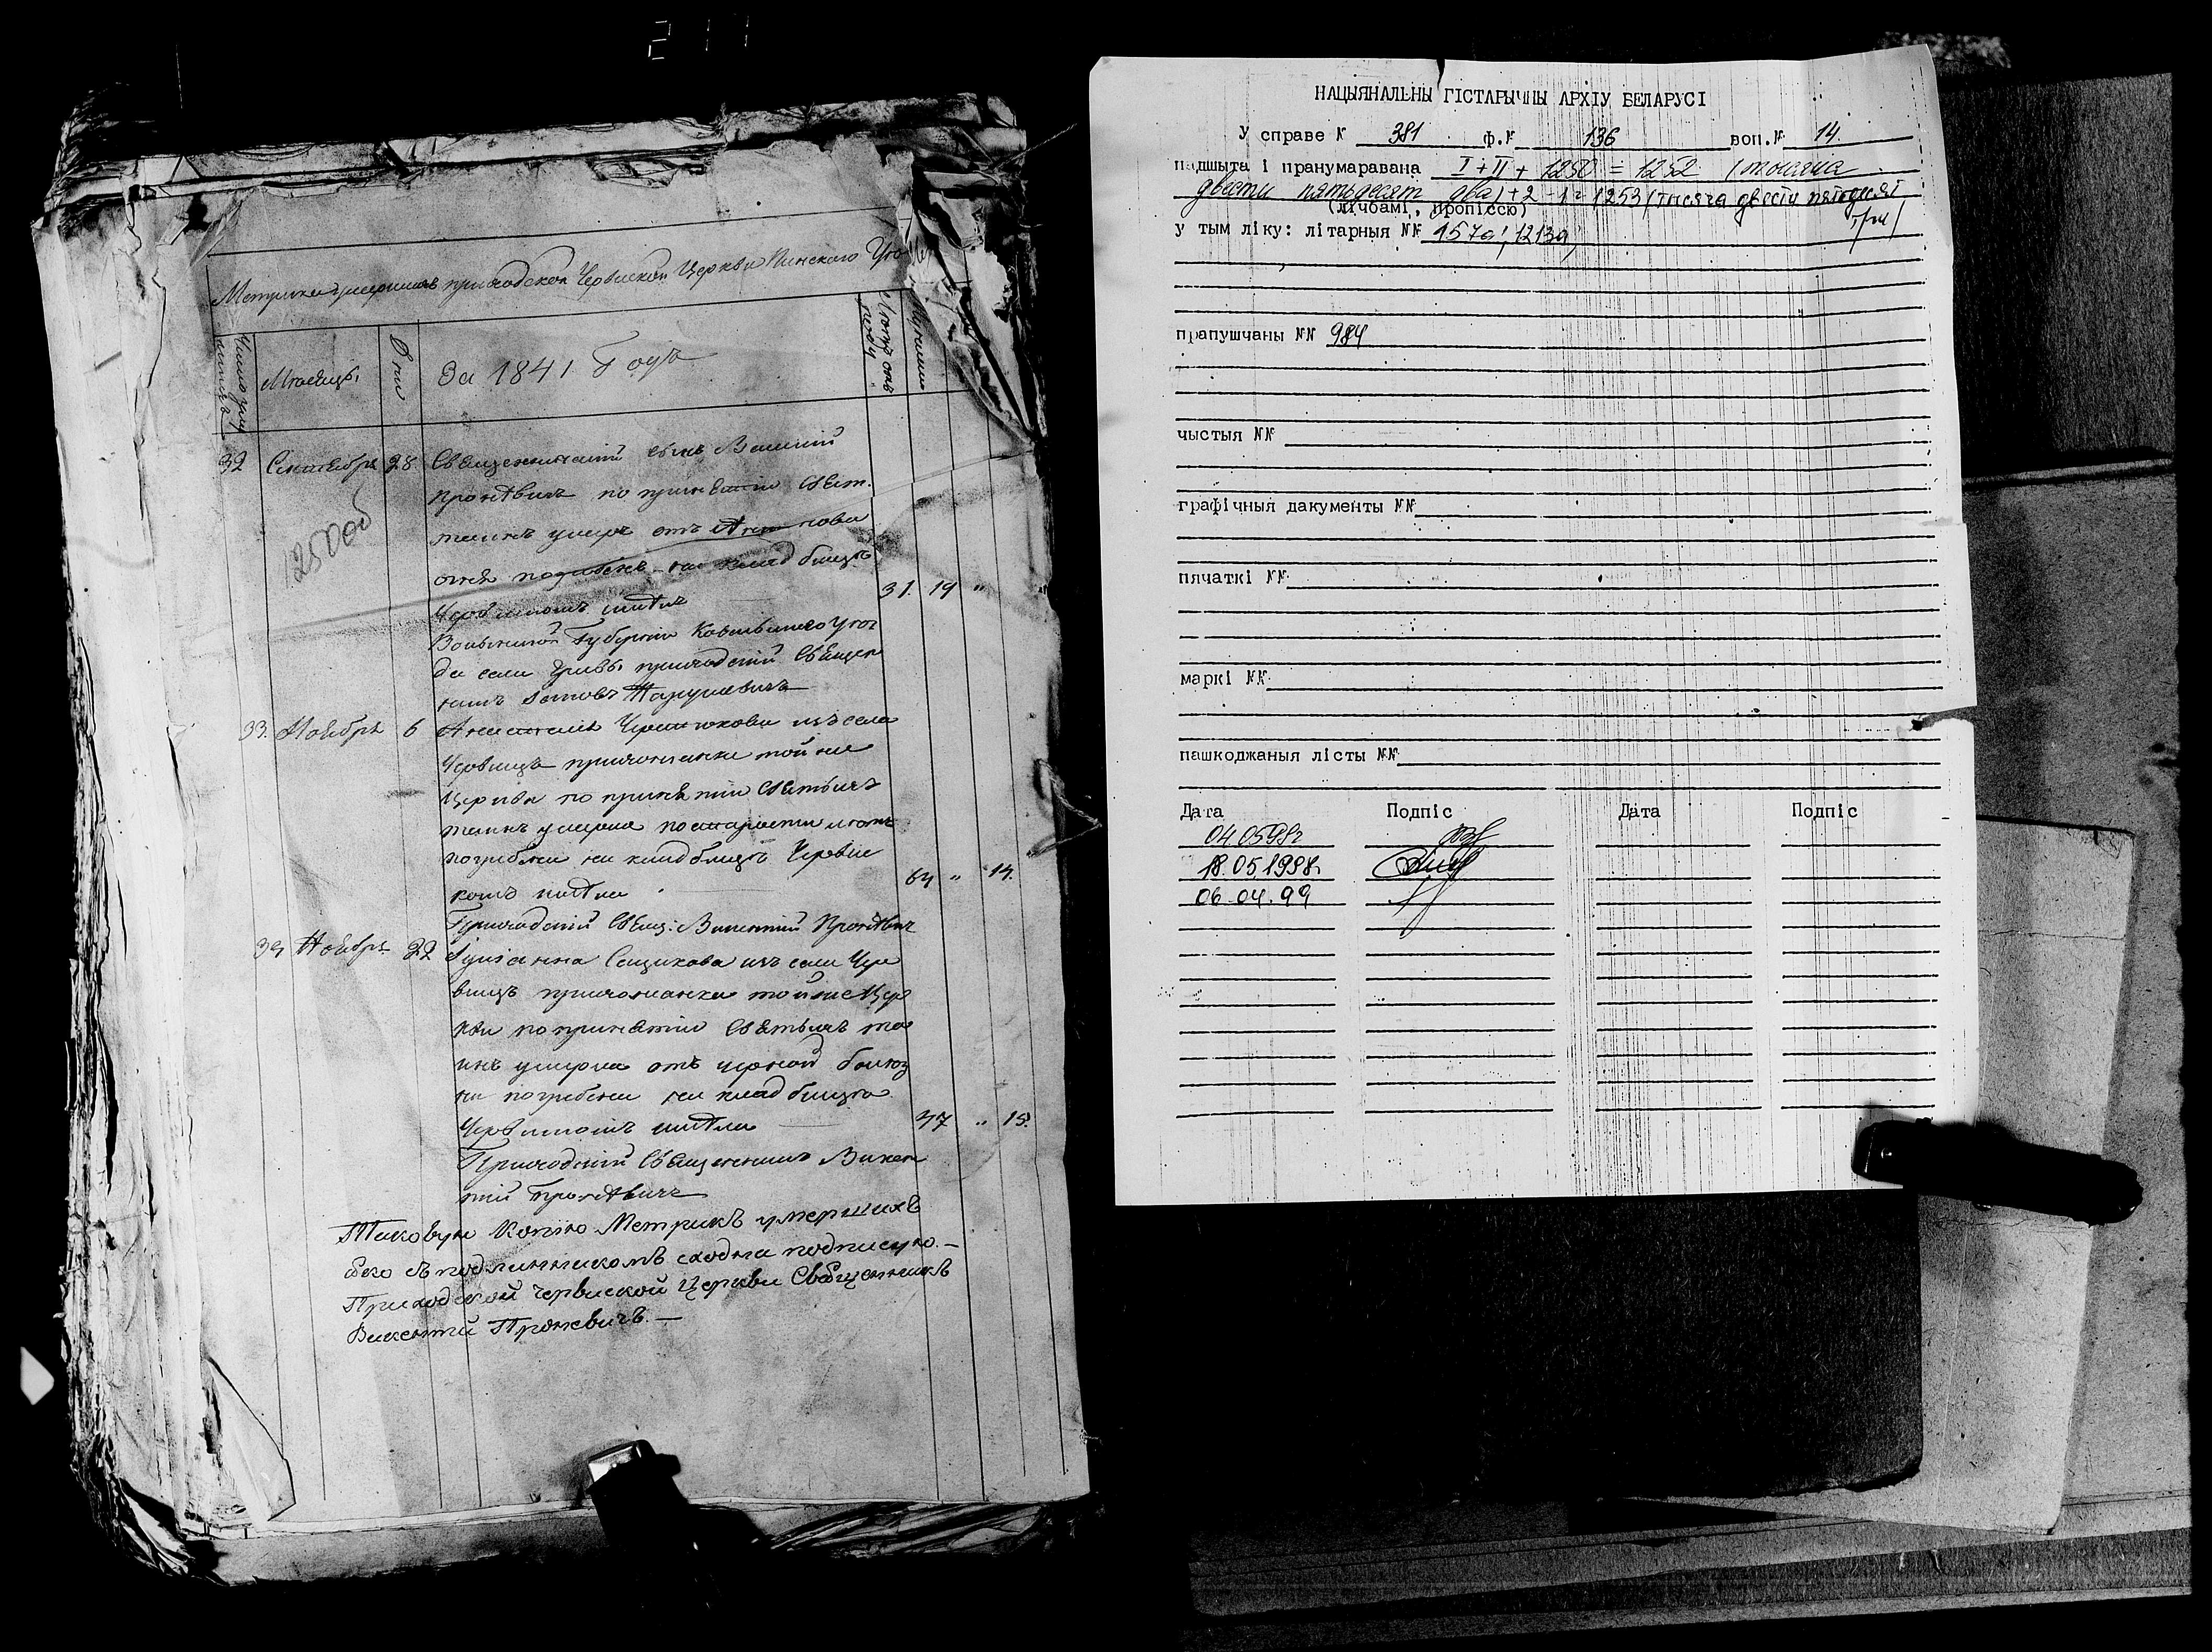 211
Метрика умершихъ приходской Червиской Церкви Пинского Уез
Число умершихъ
Месяцъ
Дни
За 1841 Годъ
Лета отъ роду
32 Сентебрь 28 Священнический сынъ Василий
Проневичъ по принетии Свят.
таинъ умре отъ
огня погребенъ на кладбищѣ
Червискомъ 31. 19 "
Волынской Губернии Ковельского Уез
да села приходский Священ
никъ
1250об
33. Ноебрь 6 Анастасия изъ села
Червищъ прихожанка той же
Церкви по принетии Светыхъ
таинъ умерла по старости летъ
погребена на кладбищѣ Червис
комъ 64 " 14.
Приходский Свящ: Викентий Проневич
34 Ноебрь 22 Сацикова изъ села Чер
вищъ прихожанка той же Цер
кви по принетии Светыхъ та
инъ умерла отъ черной болез
ни погребена на кладбищѣ
Червискомъ 37 " 15.
Приходский Священникъ Викен
тий Проневичъ
Таковую Копію Метрикъ умершихъ
яко съ подлинникомъ сходна подписую.—
Приходской Червиской Церкви Священникъ
Викентій Проневичъ.—
НАЦЫЯНАЛЬНЫ ГІСТАРЫЧНЫ АРХІУ БЕЛАРУСІ
У справе № 381 ф.№ 136 воп.№ 14.
падшыта і пранумаравана I+II+1250=1252 (тысяча
двести пятьдесят два)+2-1=1253 (тысяча двести пятьдесят
(лічбамі, пропіссю) три)
у тым ліку: літарныя №№ 157а; 1213а;
прапушчаны №№ 984
чыстыя №№
графічныя дакументы №№
пячаткі №№
маркі №№
пашкоджаныя лісты №№
Дата Подпіс Дата Подпіс
04.05.98г
18.05.1998г.
06.04.99